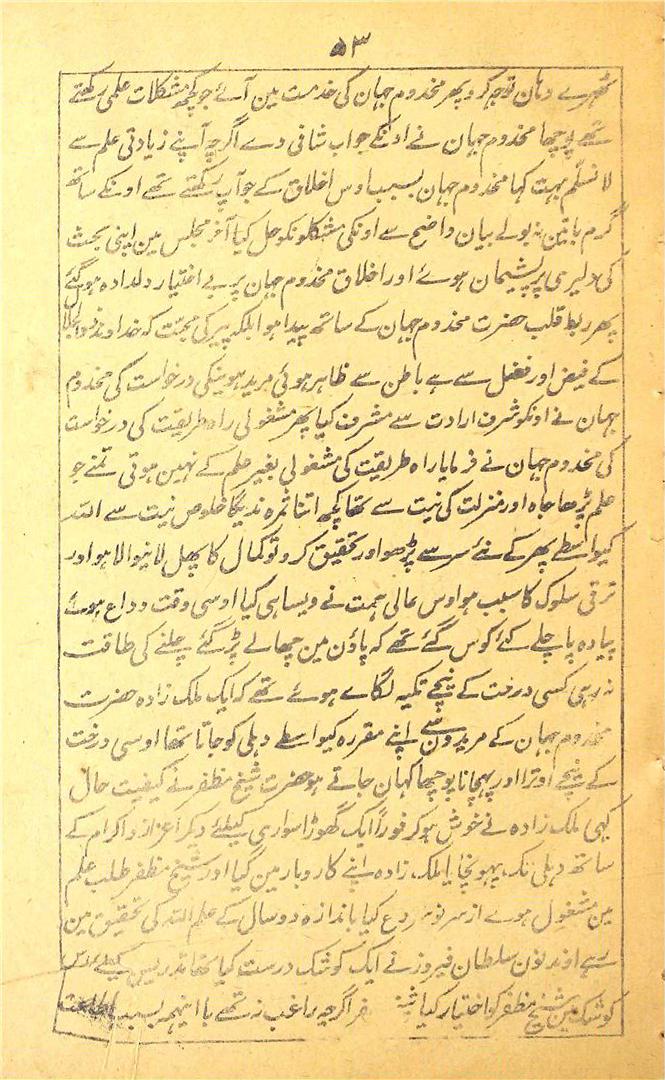 ۵۳
ٹھہرے وہان توجہ کرو پھر مخدوم جہان کی خدمت مین آئے جو کچھ مشکلات علمی رکھتے
تھے پوچھا مخدوم جہان نے اونکے جواب شافی دے اگرچہ آپنے زیادتی علم سے
لانسلّم بہت کہا مخدوم جہان بسبب اوس اخلاق کے جو آپ رکھتے تھے اونکے ساتھ
گرم باتین نہ بولے بیان واضح سے اونکی مشکلونکو حل کیا آخر مجلس مین اپنی بحث
کی دلیری پر پشیمان ہوئے اور اخلاق مخدوم جہان پر بے اختیار دلدادہ ہوگئے
پھر ربط قلب حضرت مخدوم جہان کے ساتھ پیدا ہوا بلکہ پیر کی محبت کہ خداوند ذوالجلال
کے فیض اور فضل سے ہے باطن سے ظاہر ہوئی مرید ہوینکی درخواست کی مخدوم
جہان نے اونکو شرف ارادت سے مشرف کیا پھر مشغولی راہ طریقت کی درخواست
کی مخدوم جہان نے فرمایا راہ طریقت کی مشغولی بغیر علم کے نہین ہوتی تمنے جو
علم پڑھا جاہ اور منزلت کی نیت سے تھا کچھ اتنا ثمرہ ندیگا خلوص نیت سے اللہ
کیواسطے پھر کے نئے سر سے پڑھو اور تحقیق کرو تو کمال کا پھل لانیوالا ہو اور
ترقی سلوک کا سبب ہو اوس عالی ہمت نے ویسا ہی کیا اوسی وقت وداع ہوئے
پیادہ پا چلے کئے کوس گئے تھے کہ پاؤن مین چھالے پڑ گئے چلنے کی طاقت
نہ رہی کسی درخت کے نیچے تکیہ لگائے ہوئے تھے کہ ایک ملک زادہ حضرت
مخدوم جہان کے مریدون سے اپنے مقررہ کیواسطے دہلی کو جاتا تھا اوسی درخت
کے نیچے اوترا اور پہچانا پوچھا کہان جاتے ہو حضرت شیخ مظفر نے کیفیت حال
کہی ملک زادہ نے خوش ہو کر فوراً ایک گھوڑا سواری کیلئے دیکر اعزاز و اکرام کے
ساتھ دہلی تک پہونچایا ملک زادہ اپنے کاروبار مین گیا اور شیخ مظفر طلب علم
مین مشغول ہوے از سر نو شروع کیا باندازہ دو سال کے علم اللہ کی تحقیق مین
رہے اوندنون سلطان فیروز نے ایک کوشک درست کیا تھا تدریس کیلئے
کوشک مین شیخ مظفر کو اختیار کیا اگرچہ راغب نہ تھے با اینہمہ بسبب